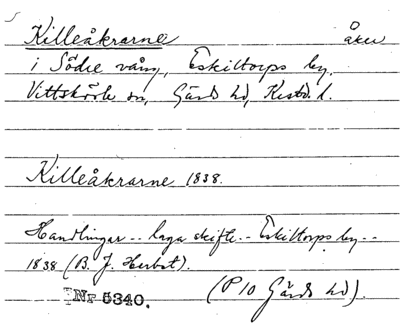 Killeåkrarne åker
i Södre vång, Eskiltorps by.
Vittskövle sn, Gärds hd, Kristi. l.
Killeåkrarne 1838.
Handlingar -- laga skifte -- Eskiltorps by --
1838 (B. J. Herbst).
Nr 5340. (P 10 Gärds hd).